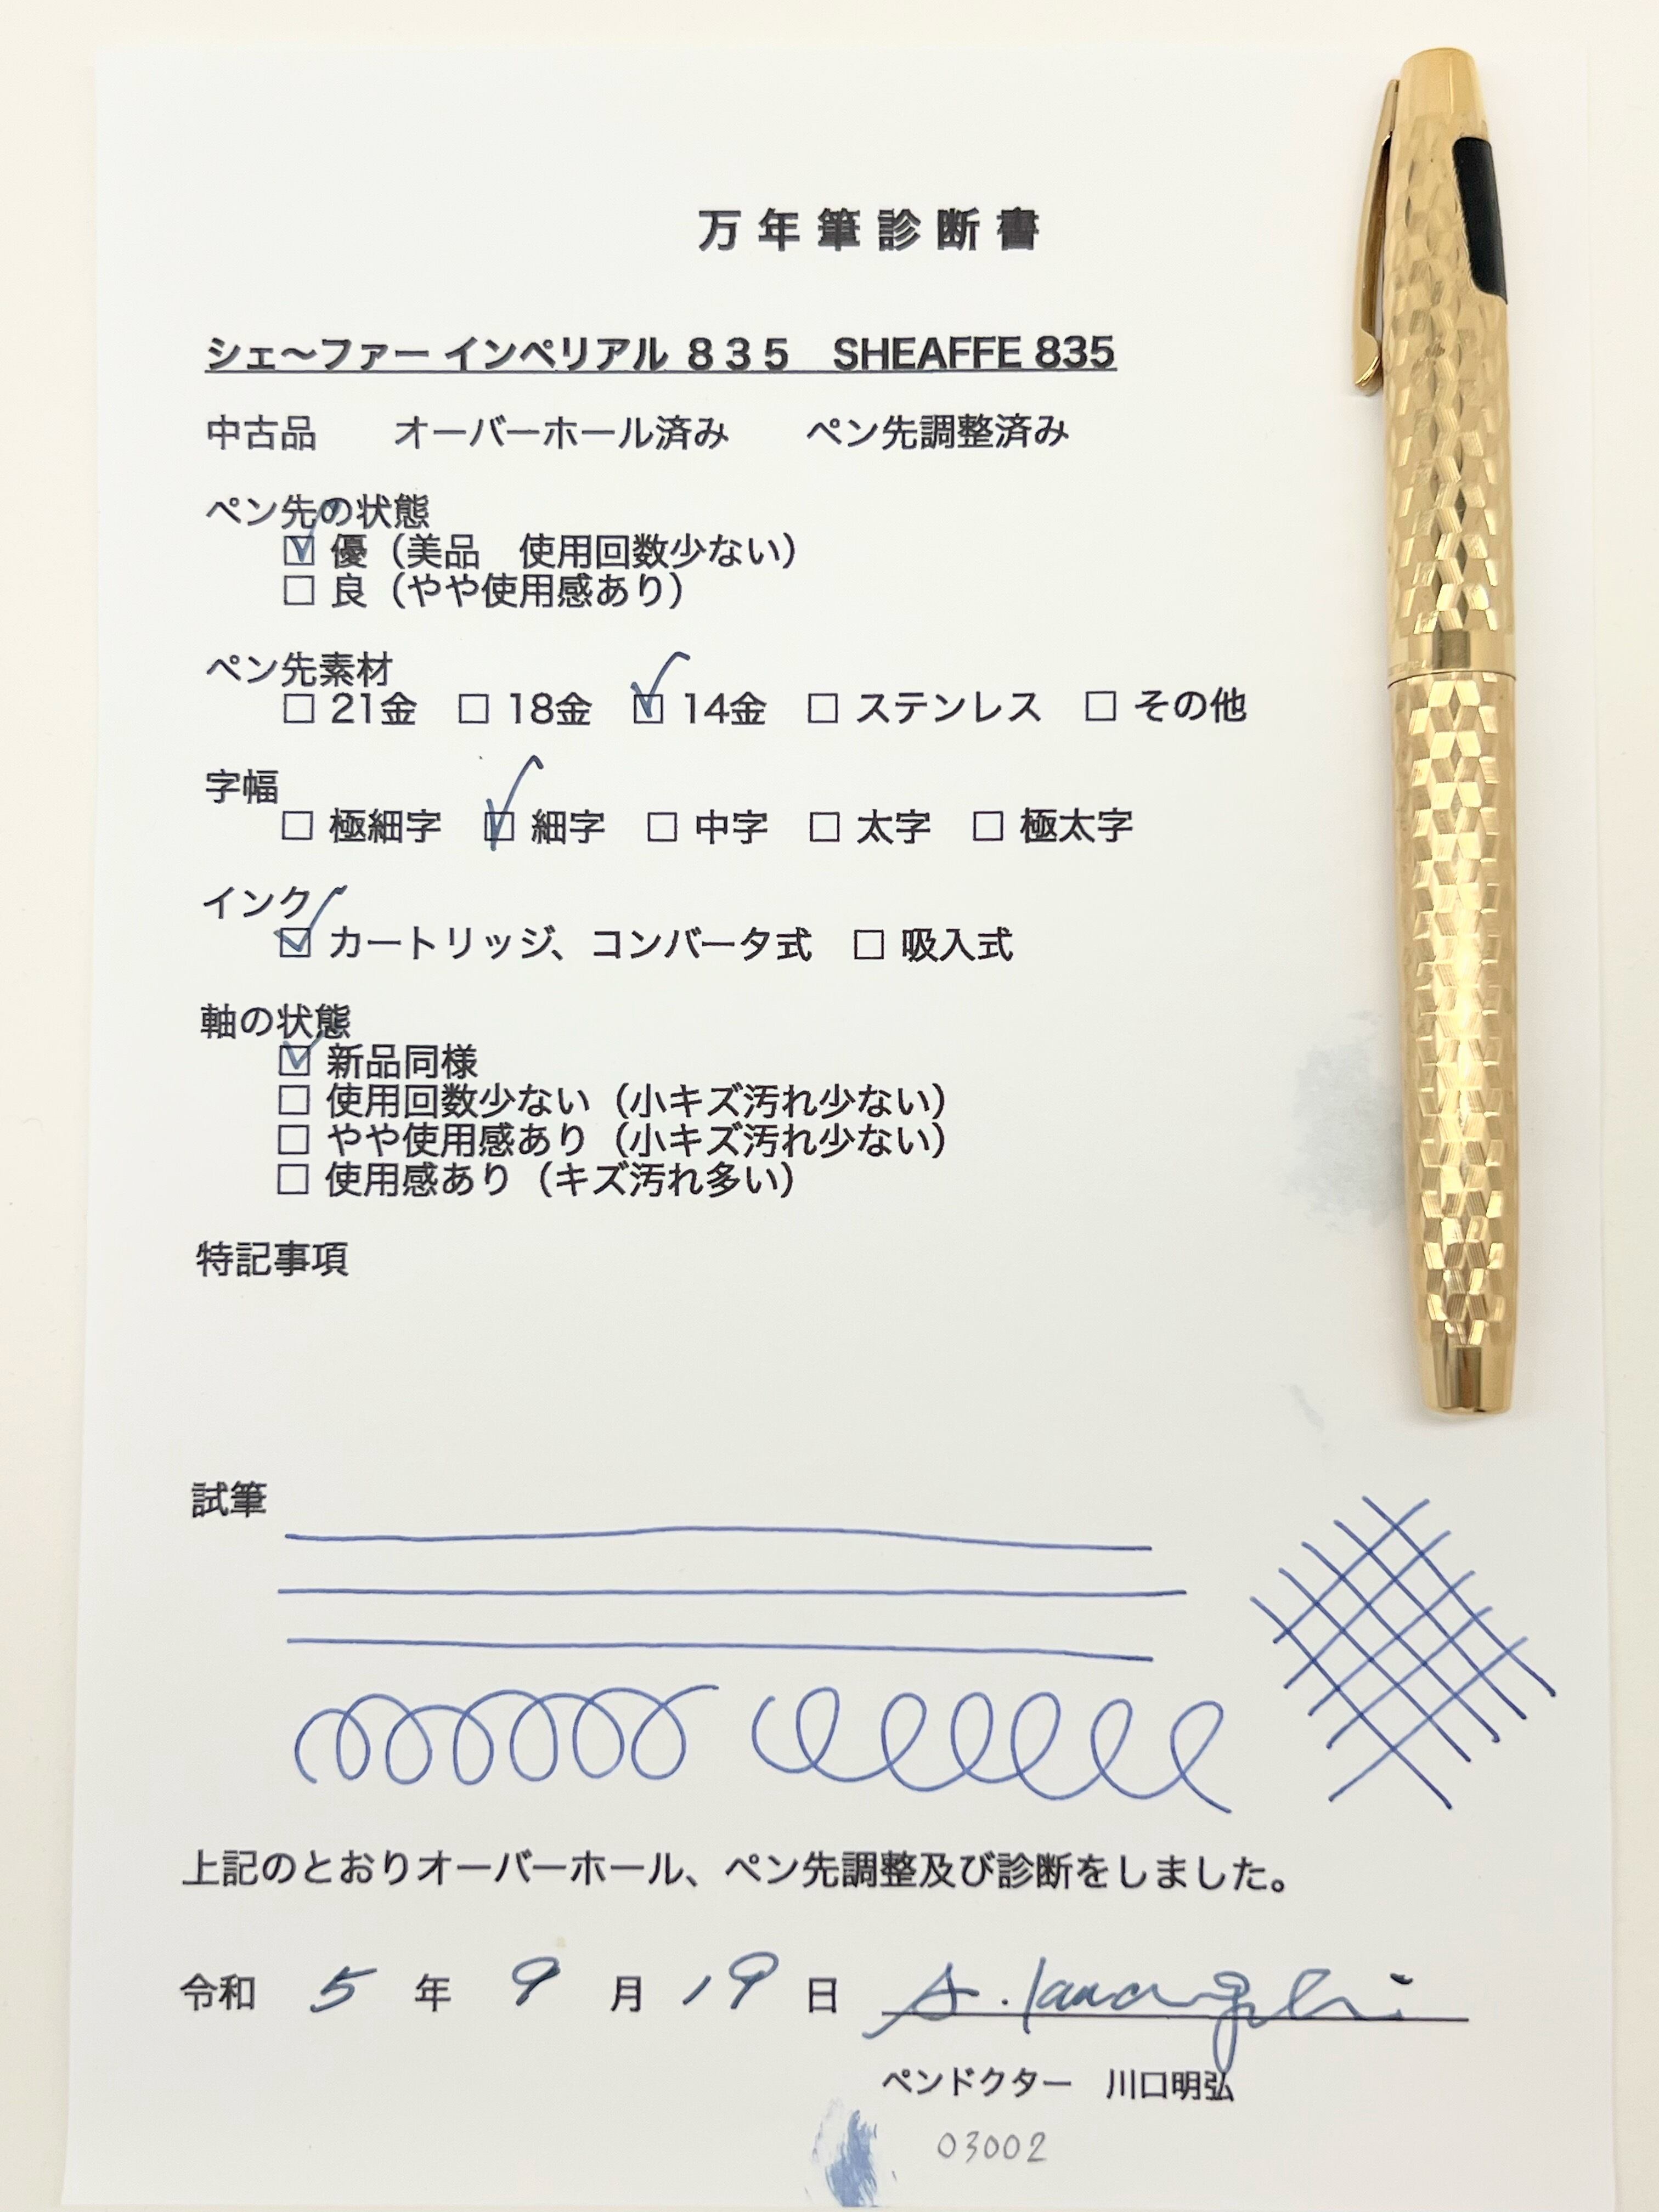 万年筆診断書
シェ〜ファー インペリアル ８３５　SHEAFFE 835
中古品　　オーバーホール済み　　ペン先調整済み
ペン先の状態
☑ 優（美品　使用回数少ない）
☐ 良（やや使用感あり）
ペン先素材
☐ 21金　☐ 18金　☑ 14金　☐ ステンレス　☐ その他
字幅
☐ 極細字　☑ 細字　☐ 中字　☐ 太字　☐ 極太字
インク
☑ カートリッジ、コンバータ式　☐ 吸入式
軸の状態
☑ 新品同様
☐ 使用回数少ない（小キズ汚れ少ない）
☐ やや使用感あり（小キズ汚れ少ない）
☐ 使用感あり（キズ汚れ多い）
特記事項
試筆
上記のとおりオーバーホール、ペン先調整及び診断をしました。
令和　5　年　9　月　19　日　A. Kawaguchi
ペンドクター　川口明弘
03002